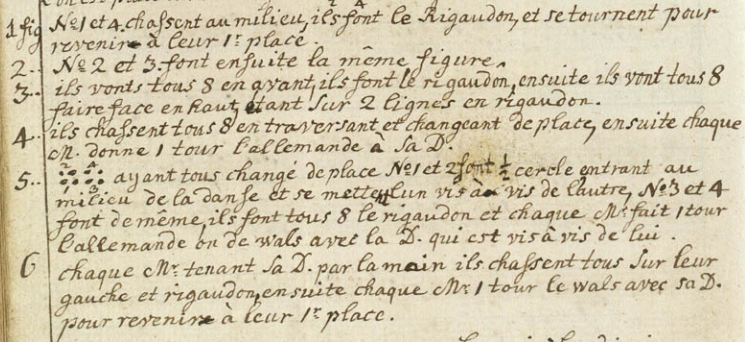 1 fig Nº 1 et 4 chassent au milieu, ils font le Rigaudon, et se tournent pour
revenir à leur 1r place.
2.. Nº 2 et 3 font ensuite la même figure.
3.. ils vonts tous 8 en avant, ils font le rigaudon, ensuite ils vont tous 8
faire face en haut, étant sur 2 lignes en rigaudon.
4.. ils chassent tous 8 en traversant, et changeant de place, ensuite chaque
M. donne 1 tour l'allemande à sa D.
5.. ayant tous changé de place Nº 1 et 2 font ½ cercle entrant au
milieu de la danse et se mettent l'un vis à vis de l'autre, Nº 3 et 4
font de même, ils font tous 8 le rigaudon et chaque Mr fait 1 tour
l'allemande ou de wals avec la D. qui est vis à vis de lui.
6 chaque Mr tenant sa D. par la main ils chassent tous sur leur
gauche et rigaudon, ensuite chaque Mr 1 tour le wals avec sa D.
pour revenir à leur 1r place.